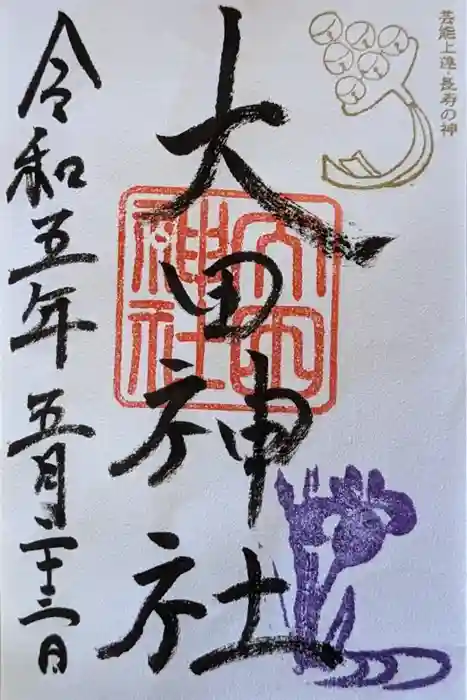 芸能上達・長寿の神
大田神社
大田
神社
令和五年五月二十三日